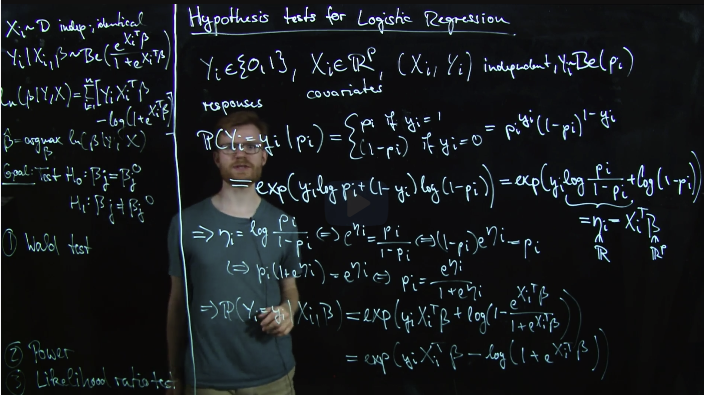 Xi ~ D indep., identical
Yi | Xi, β ~ Be(e^{Xi^T β} / (1 + e^{Xi^T β}))
ln(β | Y, X) = Σ_{i=1}^{n} [Yi Xi^T β
- log(1 + e^{Xi^T β})]
β̂ = argmax_β ln(β | Y, X)
Goal: Test H0: βj = βj^0
H1: βj ≠ βj^0
① Wald test
② Power
③ Likelihood ratio test
Hypothesis tests for Logistic Regression
Yi ∈ {0,1}, Xi ∈ ℝ^p, (Xi, Yi) independent, Yi ~ Be(pi)
responses covariates
ℙ(Yi = yi | pi) = { pi if yi = 1 (1 - pi) if yi = 0 = pi^{yi} (1 - pi)^{1 - yi}
= exp(yi log pi + (1 - yi) log(1 - pi)) = exp(yi log pi / (1 - pi) + log(1 - pi))
= ηi = Xi^T β
ℝ ℝ^p
⇒ ηi = log pi / (1 - pi) ⇔ e^{ηi} = pi / (1 - pi) ⇔ (1 - pi) e^{ηi} = pi
⇔ pi (1 + e^{ηi}) = e^{ηi} ⇔ pi = e^{ηi} / (1 + e^{ηi})
⇒ ℙ(Yi = yi | Xi, β) = exp(yi Xi^T β + log(1 - e^{Xi^T β} / (1 + e^{Xi^T β})))
= exp(yi Xi^T β - log(1 + e^{Xi^T β}))